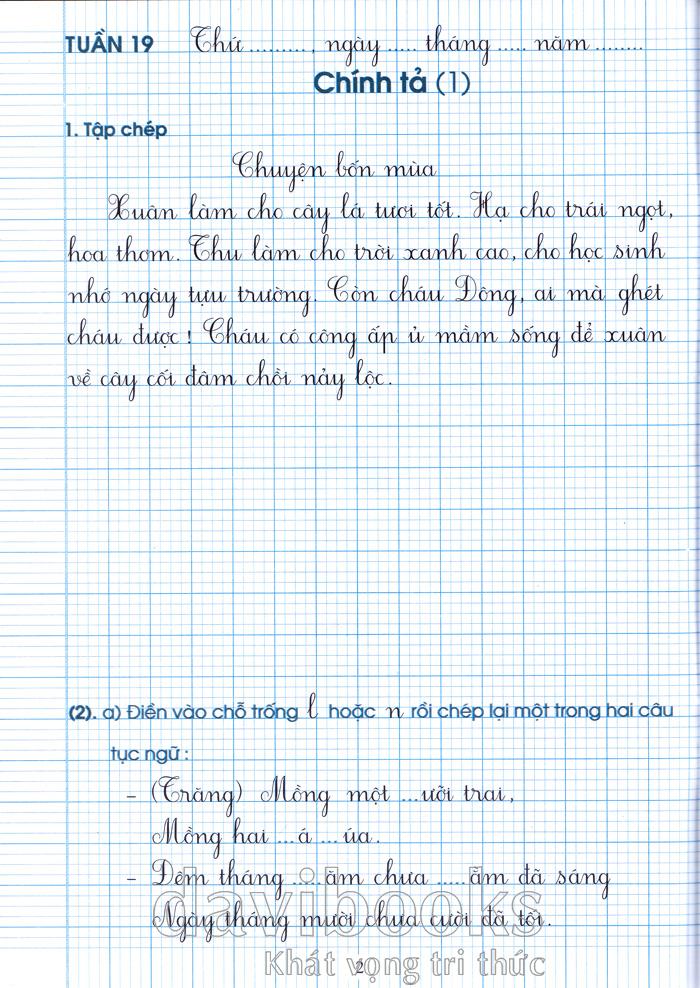 TUẦN 19 Thứ .........., ngày ..... tháng ..... năm ........
Chính tả (1)
1. Tập chép
Chuyện bốn mùa
Xuân làm cho cây lá tươi tốt. Hạ cho trái ngọt,
hoa thơm. Thu làm cho trời xanh cao, cho học sinh
nhớ ngày tựu trường. Còn cháu Đông, ai mà ghét
cháu được! Cháu có công ấp ủ mầm sống để xuân
về cây cối đâm chồi nảy lộc.
(2). a) Điền vào chỗ trống l hoặc n rồi chép lại một trong hai câu
tục ngữ :
- (Trăng) Mồng một ...ưỡi trai,
Mồng hai ...á ...úa.
- Đêm tháng .....ăm chưa .....ằm đã sáng
Ngày tháng mười chưa cười đã tối.
davibooks
Khát vọng tri thức
2